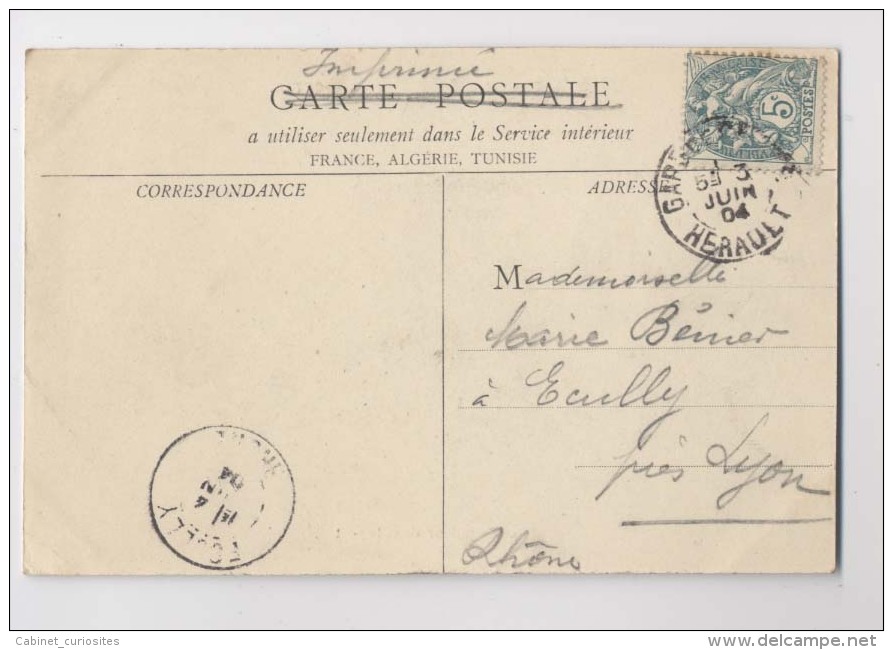 Imprimé
CARTE POSTALE
a utiliser seulement dans le Service intérieur
FRANCE, ALGÉRIE, TUNISIE
CORRESPONDANCE
ADRESSE
5c
POSTES
GARE DE
JUIN
04
HERAULT
Mademoiselle
Marie Bénier
à Ecully
près Lyon
Rhône
ECULLY
4
04
RHONE
Cabinet_curiosites
delcampe.net